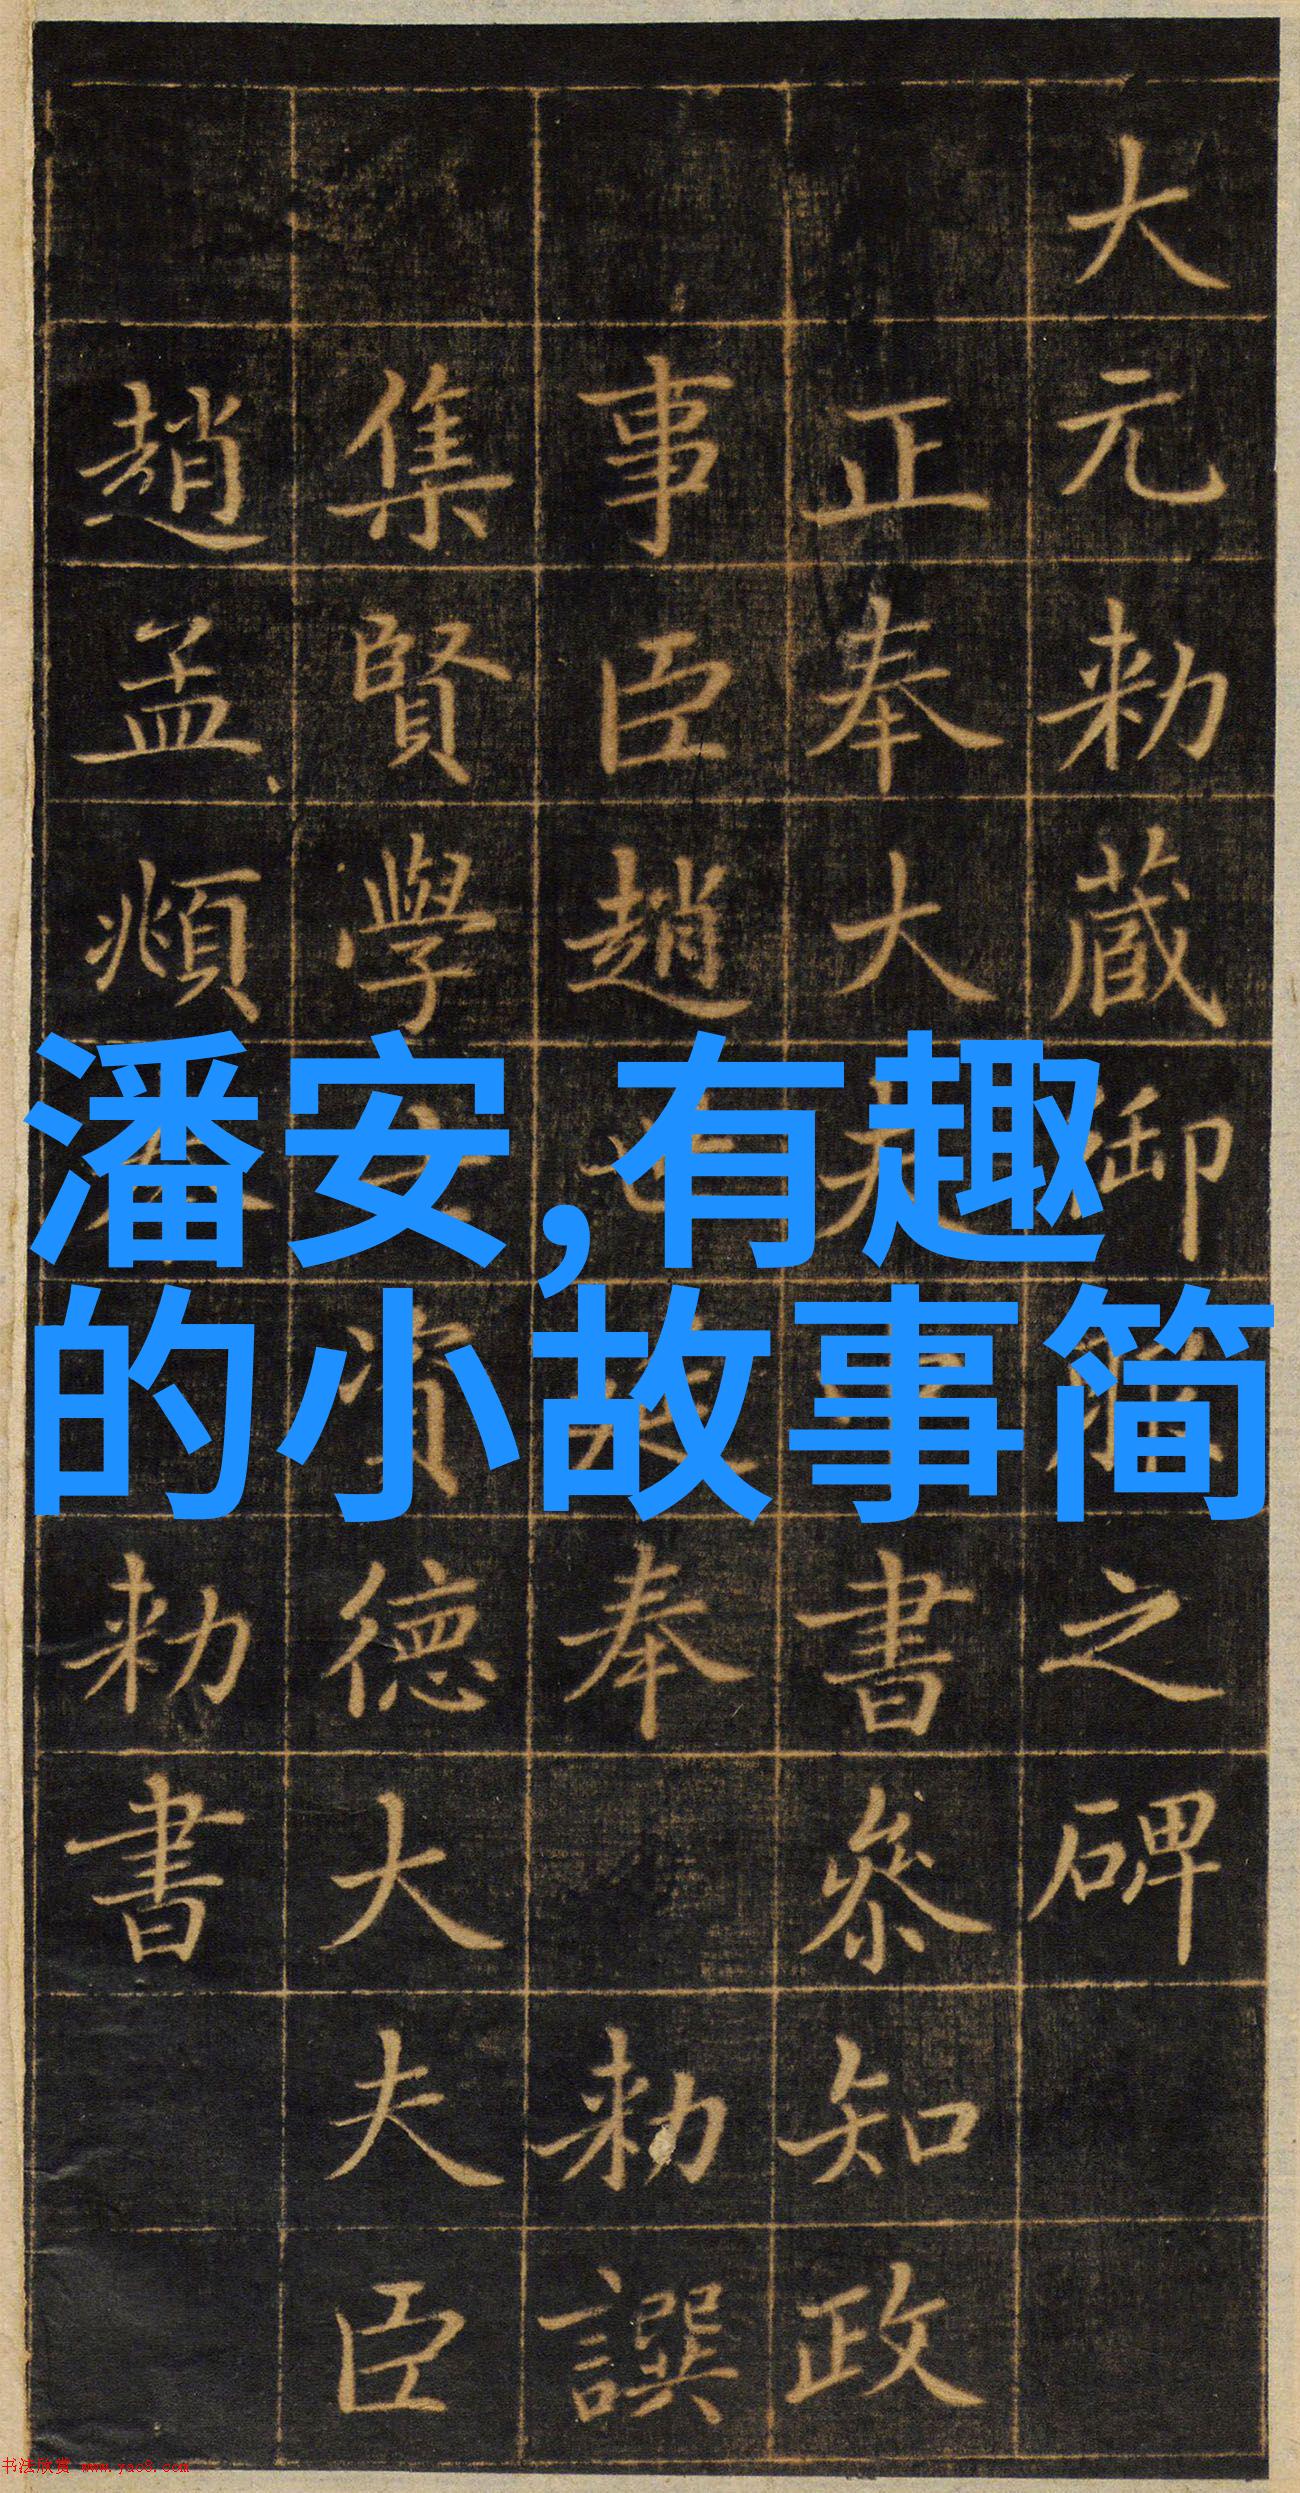 大元勅藏御之碑
正奉大夫書參知政
事臣趙奉勅譔
集賢學士資德大夫臣
趙孟頫奉勅書
潘安,有趣
的小故事简
书法欣赏 www.yac8.com